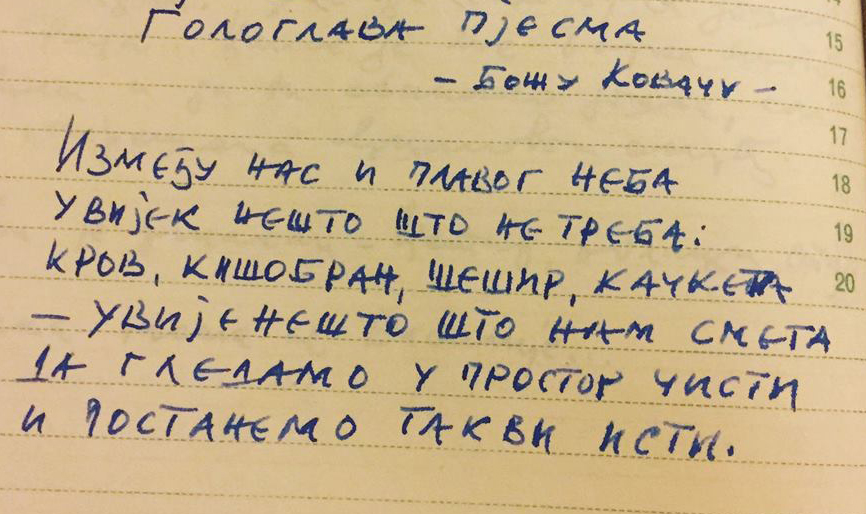 14
Гологлава пјесма 15
- Божу Ковачу - 16
17
Између нас и плавог неба 18
увијек нешто што не треба: 19
кров, кишобран, шешир, качкета 20
– увије нешто што нам смета
да гледамо у простор чисти
и постанемо такви исти.